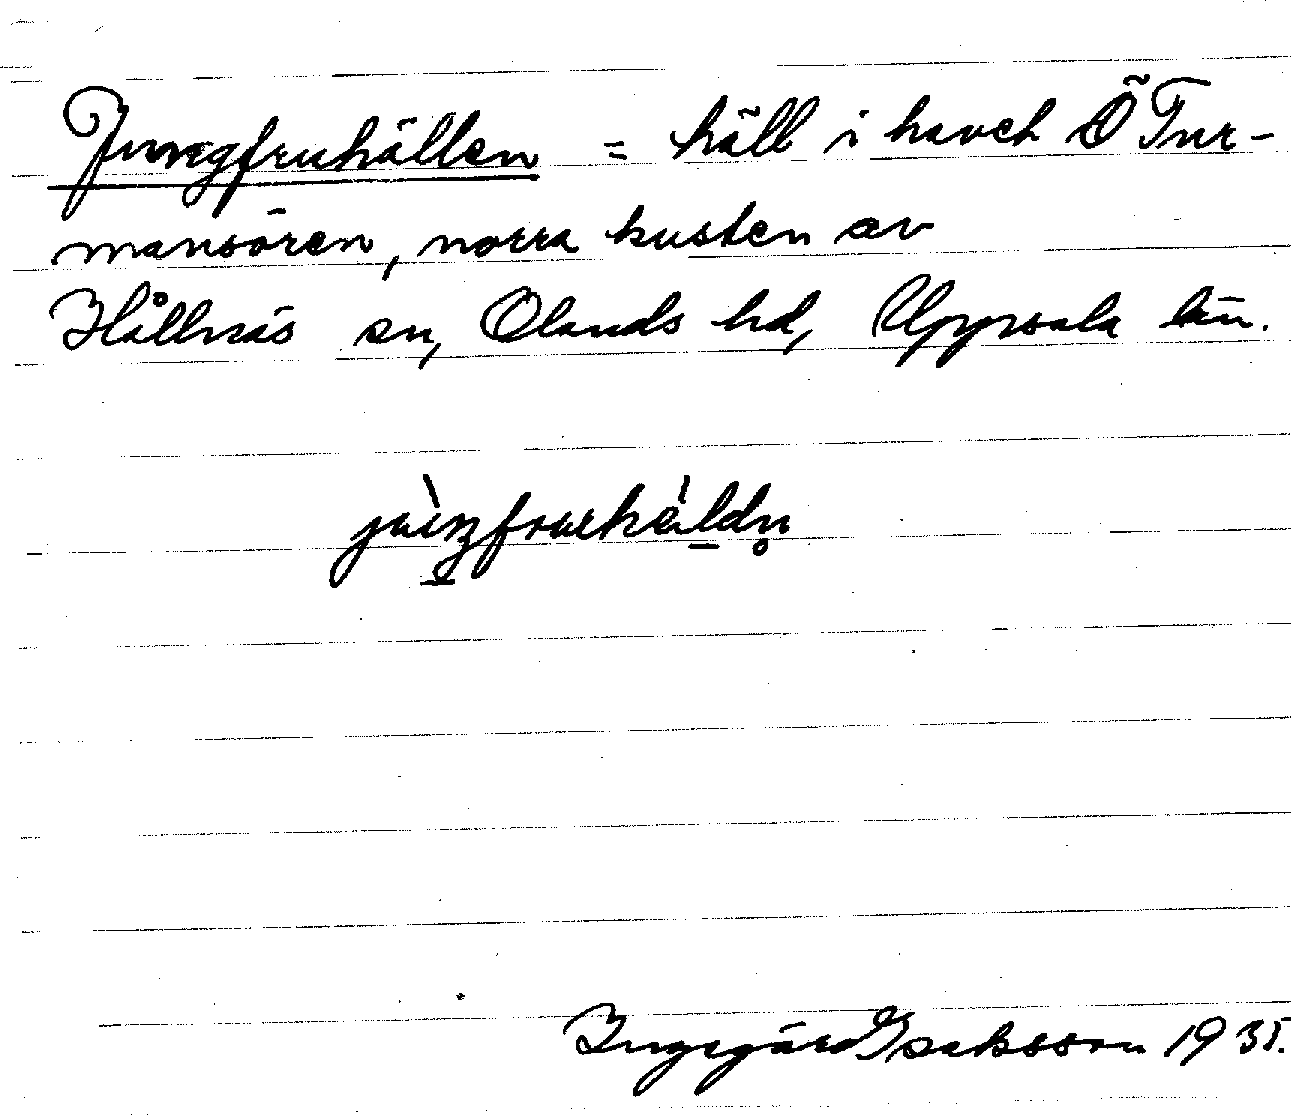 Jungfruhällen = häll i havet Ö Tur-
mansören, norra kusten av
Hållnäs sn, Olands hd, Uppsala län.
Ingegärd Isaksson 1935.